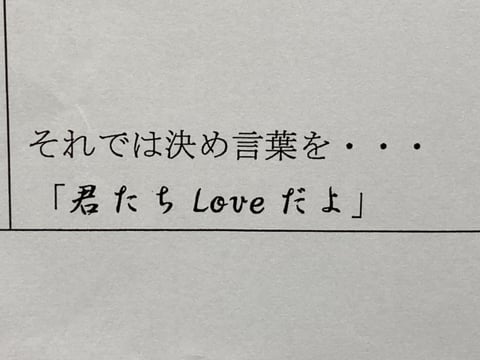 それでは決め言葉を・・・
「君たちLoveだよ」